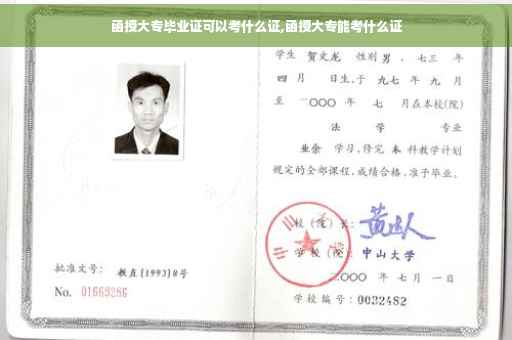 函授大专毕业证可以考什么证,函授大专能考什么证
学生 贺文龙 性别 男 、七三 年
四 月 日生,于 九七 年 九 月
至 二〇〇〇 年 七 月在本校(院)
法 学 专业
业余 学习,修完 本 科教学计划
规定的全部课程,成绩合格,准予毕业。
校(院)长:
学校(院): 中山大学
二〇〇〇 年 七 月 一 日
批准文号: 教直[1993]8号
No. 01669286
学校编号: 0032482